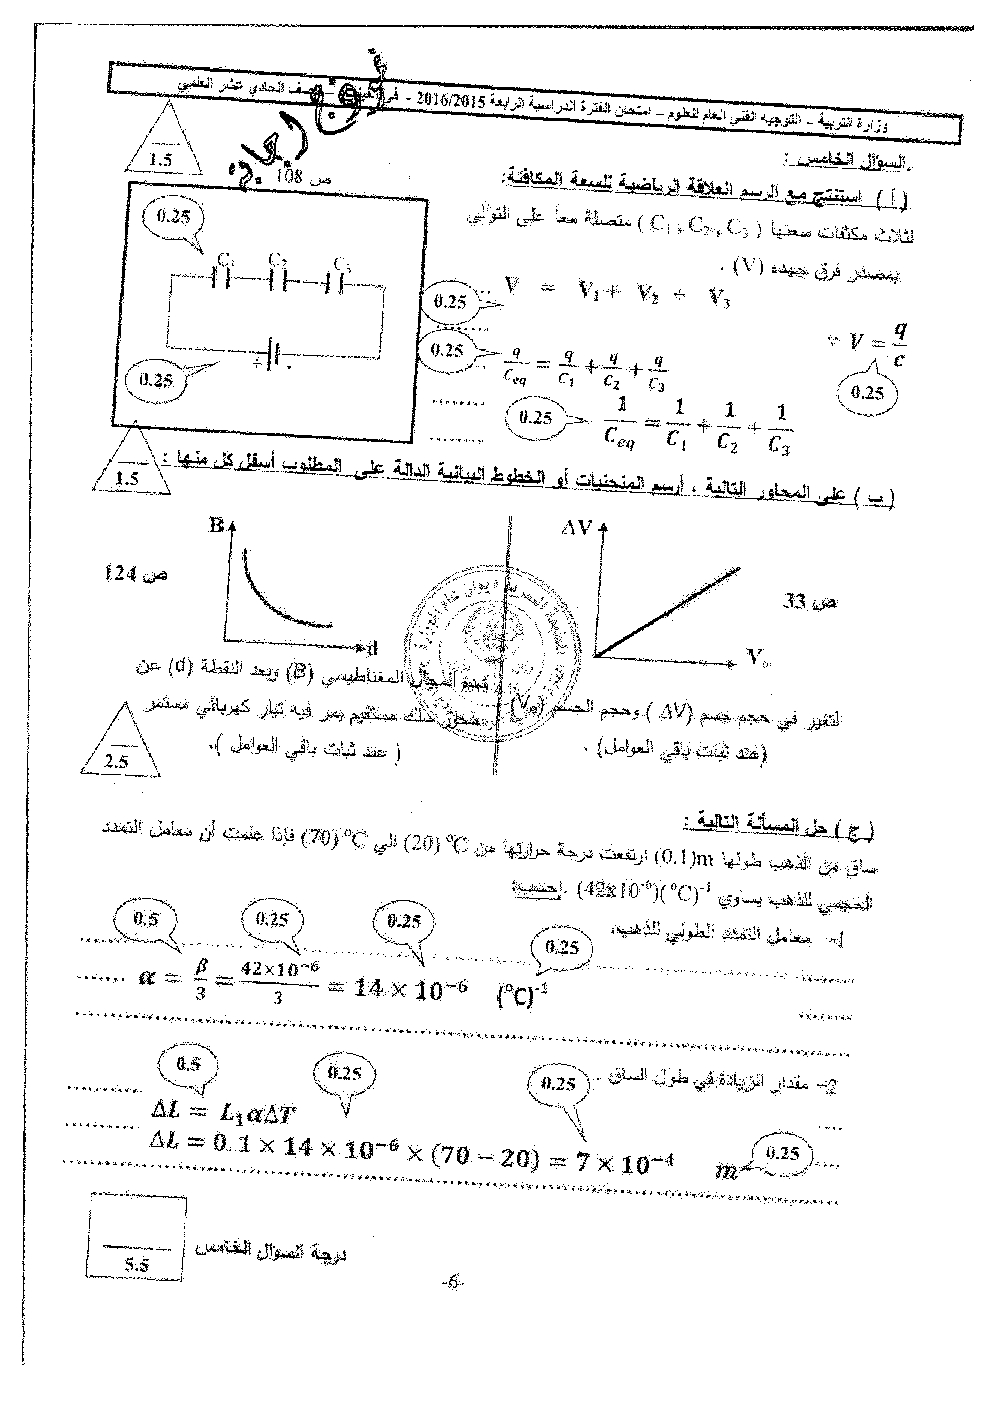 وزارة التربية – التوجيه الفني العام للعلوم – امتحان الفترة الدراسية الرابعة 2016/2015 - الصف الحادي عشر العلمي
1.5
السؤال الخامس :
ص 108
( أ ) استنتج مع الرسم العلاقة الرياضية للسعة المكافئة:
لثلاث مكثفات سعتها ( C₁ , C₂ , C₃ ) متصلة معاً على التوالي
بمصدر فرق جهده (V) .
0.25
C₁ C₂ C₃
+ -
0.25
0.25
V = V₁ + V₂ + V₃
0.25
q/C_eq = q/C₁ + q/C₂ + q/C₃
∵ V = q/c
0.25
0.25
1/C_eq = 1/C₁ + 1/C₂ + 1/C₃
1.5
( ب ) على المحاور التالية ، أرسم المنحنيات أو الخطوط البيانية الدالة على المطلوب أسفل كل منها :
ΔV
V₀
ص 33
B
d
ص 124
التغير في حجم جسم (ΔV ) وحجم الجسم (V₀)
(عند ثبات باقي العوامل) .
المجال المغناطيسي (B) وبعد النقطة (d) عن
سلك مستقيم يمر فيه تيار كهربائي مستمر
( عند ثبات باقي العوامل ).
2.5
( ج ) حل المسألة التالية :
ساق من الذهب طولها 0.1)m) ارتفعت درجة حرارتها من (20) ⁰C الي (70) ⁰C فإذا علمت أن معامل التمدد
الحجمي للذهب يساوي (42x10⁻⁶)(⁰C)⁻¹ . احسب:
1- معامل التمدد الطولي للذهب.
0.5 0.25 0.25 0.25
α = β/3 = 42×10⁻⁶/3 = 14 × 10⁻⁶ (⁰C)⁻¹
2- مقدار الزيادة في طول الساق .
0.5 0.25 0.25
ΔL = L₁αΔT
ΔL = 0.1 × 14 × 10⁻⁶ × (70 − 20) = 7 × 10⁻⁴ m
0.25
5.5
درجة السؤال الخامس
-6-